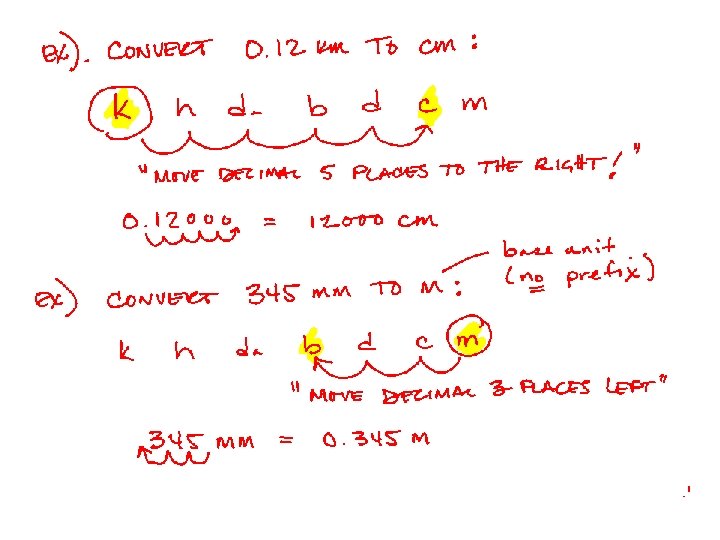 EX). CONVERT 0.12 km TO cm :
k h da b d c m
"MOVE DECIMAL 5 PLACES TO THE RIGHT!"
0.12000 = 12000 cm
base unit
(no prefix)
EX) CONVERT 345 mm TO m :
k h da b d c m
"MOVE DECIMAL 3 PLACES LEFT"
345 mm = 0.345 m